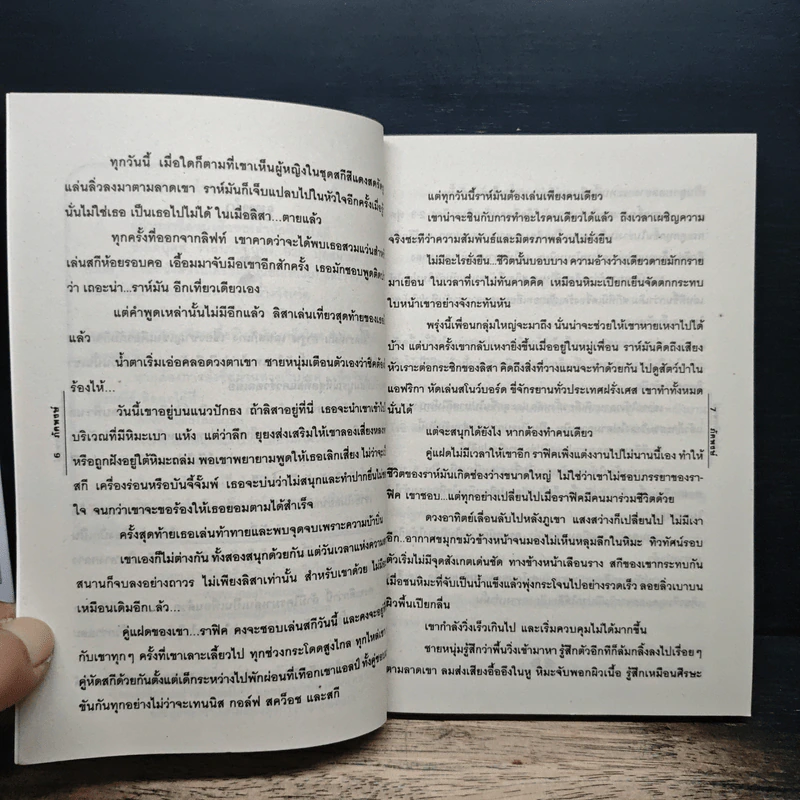 ทุกวันนี้ เมื่อใดก็ตามที่เขาเห็นผู้หญิงในชุดสกีสีแดงสด
แล่นลิ่วลงมาตามลาดเขา ราห์มันก็เจ็บแปลบไปในหัวใจอีกครั้งเมื่อรู้
นั่นไม่ใช่เธอ เป็นเธอไปไม่ได้ ในเมื่อลิสา...ตายแล้ว
ทุกครั้งที่ออกจากลิฟท์ เขาคาดว่าจะได้พบเธอสวมแว่น
เล่นสกีห้อยรอบคอ เอื้อมมาจับมือเขาอีกสักครั้ง เธอมักชอบพูดติด
ว่า เถอะน่า...ราห์มัน อีกเที่ยวเดียวเอง
แต่คำพูดเหล่านั้นไม่มีอีกแล้ว ลิสาเล่นเที่ยวสุดท้ายของเธอ
แล้ว
น้ำตาเริ่มเอ่อคลอดวงตาเขา ชายหนุ่มเตือนตัวเองว่า
ร้องไห้...
วันนี้เขาอยู่บนแนวปักธง ถ้าลิสาอยู่ที่นี่ เธอจะนำเขาเข้าไป
บริเวณที่มีหิมะเบา แห้ง แต่ว่าลึก ยุยงส่งเสริมให้เขาลองเสี่ยง
หรือถูกฝังอยู่ใต้หิมะถล่ม พอเขาพยายามพูดให้เธอเลิกเสี่ยง ไม่ว่าจะเป็น
สกี เครื่องร่อนหรือบันจี้จั๊มพ์ เธอจะบ่นว่าไม่สนุกและทำปากยื่น
ใจ จนกว่าเขาจะขอร้องให้เธอยอมตามได้สำเร็จ
ครั้งสุดท้ายเธอเล่นท้าทายและพบจุดจบเพราะความบ้าบิ่น
เขาเองก็ไม่ต่างกัน ทั้งสองสนุกด้วยกัน แต่วันเวลาแห่งความ
สนานก็จบลงอย่างถาวร ไม่เพียงลิสาเท่านั้น สำหรับเขาด้วย ไม่มี
เหมือนเดิมอีกแล้ว...
คู่แฝดของเขา...ราฟิค คงจะชอบเล่นสกีวันนี้ และคงจะอยู่
กับเขาทุกๆ ครั้งที่เขาเลาะเลี้ยวไป ทุกช่วงกระโดดสูงไกล ทุกไหล่เขา
คู่หัดสกีด้วยกันตั้งแต่เด็กระหว่างไปพักผ่อนที่เทือกเขาแอลป์ ทั้งคู่ชอบ
ขันกันทุกอย่างไม่ว่าจะเทนนิส กอล์ฟ สควอ็ช และสกี
6
ภัคพรษ์
แต่ทุกวันนี้ราห์มันต้องเล่นเพียงคนเดียว
เขาน่าจะชินกับการทำอะไรคนเดียวได้แล้ว ถึงเวลาเผชิญความ
จริงซะทีว่าความสัมพันธ์และมิตรภาพล้วนไม่ยั่งยืน
ไม่มีอะไรยั่งยืน...ชีวิตนั้นบอบบาง ความอ้างว้างเดียวดายมักกราย
มาเยือน ในเวลาที่เราไม่ทันคาดคิด เหมือนหิมะเปียกเย็นจัดตกกระทบ
ใบหน้าเขาอย่างจังกะทันหัน
พรุ่งนี้เพื่อนกลุ่มใหญ่จะมาถึง นั่นน่าจะช่วยให้เขาหายเหงาไปได้
บ้าง แต่บางครั้งเขากลับเหงายิ่งขึ้นเมื่ออยู่ในหมู่เพื่อน ราห์มันคิดถึงเสียง
หัวเราะต่อกระซิกของลิสา คิดถึงสิ่งที่วางแผนจะทำด้วยกัน ไปดูสัตว์ป่าใน
แอฟริกา หัดเล่นสโนว์บอร์ด ขี่จักรยานทั่วประเทศฝรั่งเศส เขาทำทั้งหมด
นั่นได้
แต่จะสนุกได้ยังไง หากต้องทำคนเดียว
คู่แฝดไม่มีเวลาให้เขาอีก ราฟิคเพิ่งแต่งงานไปไม่นานนี้เอง ทำให้
ชีวิตของราห์มันเกิดช่องว่างขนาดใหญ่ ไม่ใช่ว่าเขาไม่ชอบภรรยาของรา-
ฟิค เขาชอบ...แต่ทุกอย่างเปลี่ยนไปเมื่อราฟิคมีคนมาร่วมชีวิตด้วย
ดวงอาทิตย์เลื่อนลับไปหลังภูเขา แสงสว่างก็เปลี่ยนไป ไม่มีเงา
อีก..อากาศขมุกขมัวข้างหน้าจนมองไม่เห็นหลุมลึกในหิมะ ทิวทัศน์รอบ
ตัวเริ่มไม่มีจุดสังเกตเด่นชัด ทางข้างหน้าเลือนราง สกีของเขากระทบกัน
เมื่อชนหิมะที่จับเป็นน้ำแข็งแล้วพุ่งกระโจนไปอย่างรวดเร็ว ลอยลิ่วเบาบน
ผิวพื้นเปียกลื่น
เขากำลังวิ่งเร็วเกินไป และเริ่มควบคุมไม่ได้มากขึ้น
ชายหนุ่มรู้สึกว่าพื้นวิ่งเข้ามาหา รู้สึกตัวอีกทีก็ล้มกลิ้งลงไปเรื่อยๆ
ตามลาดเขา ลมส่งเสียงอื้ออึงในหู หิมะจับพอกผิวเนื้อ รู้สึกเหมือนศีรษะ
7
ภัคพรษ์